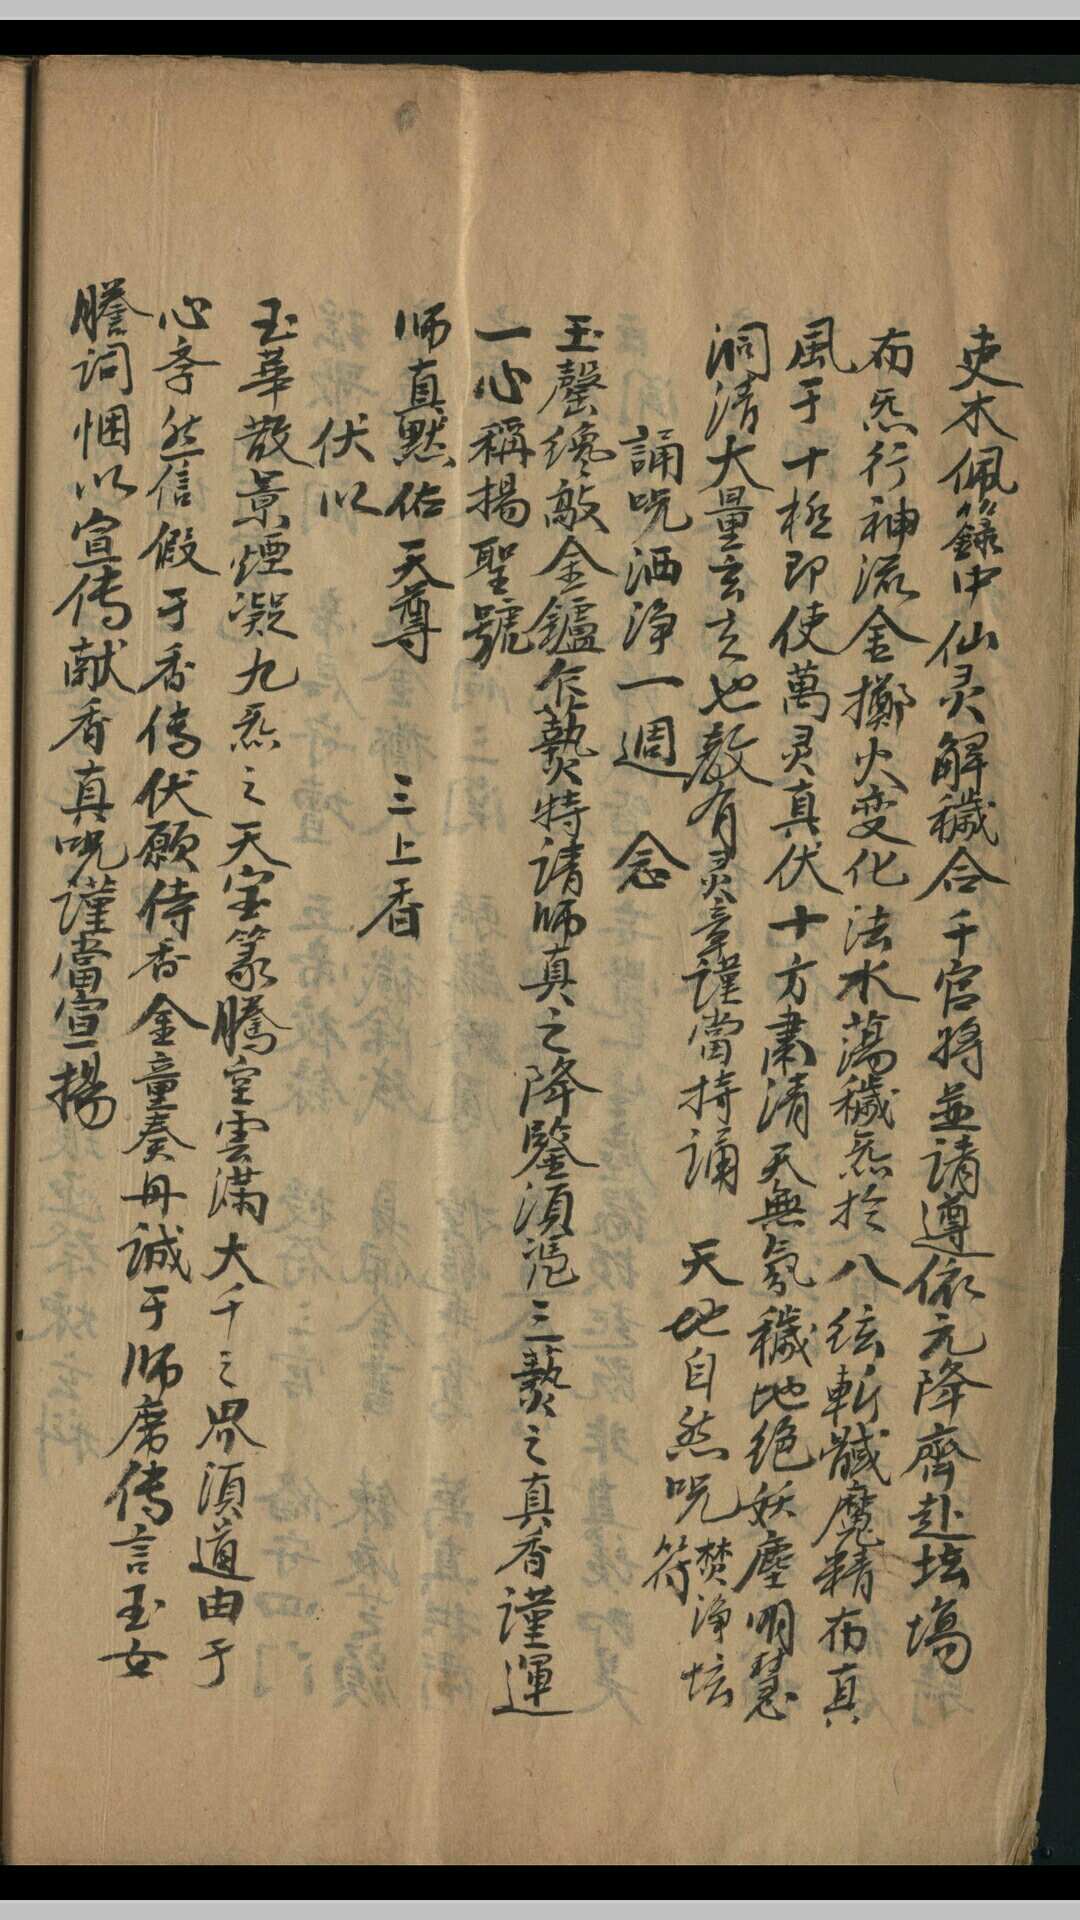 吏木佩籙中仙灵解穢合千官将並请遵依元降齊赴坛場
布炁行神流金擲火变化法水蕩穢炁於八纮斬馘魔精布真
風于十極即使萬灵真伏十方肅清天無氛穢地绝妖塵明慧
洞清大量玄玄也教有灵章謹當持誦 天地自然呪 焚净坛符
誦呪洒净一週 念
玉罄纔敲金鑪乍爇特请師真之降鑒須凴三爇之真香谨運
一心稱揚聖號
师真默佑天尊 三上香
伏以
玉華散景煙凝九炁之天宝篆騰空雲满大千之界須道由于
心斈然信假于香传伏願侍香金童奏丹誠于师席传言玉女
謄词悃以宣传献香真呪谨當宣揚